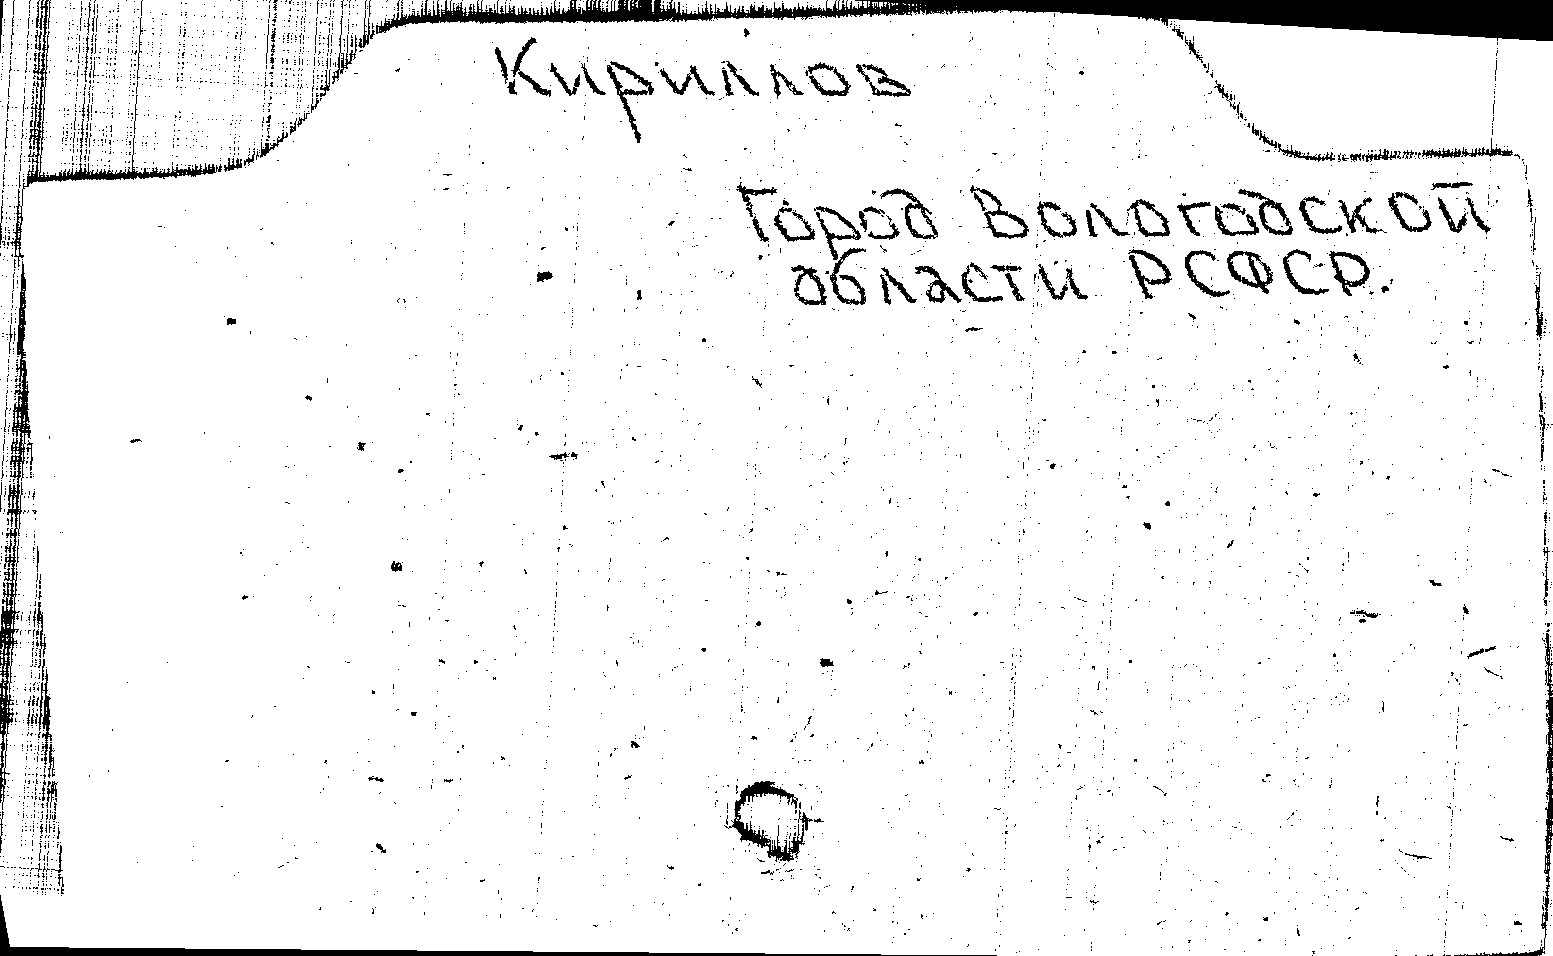 Кириллов
Город Вологодской
области РСФСР.